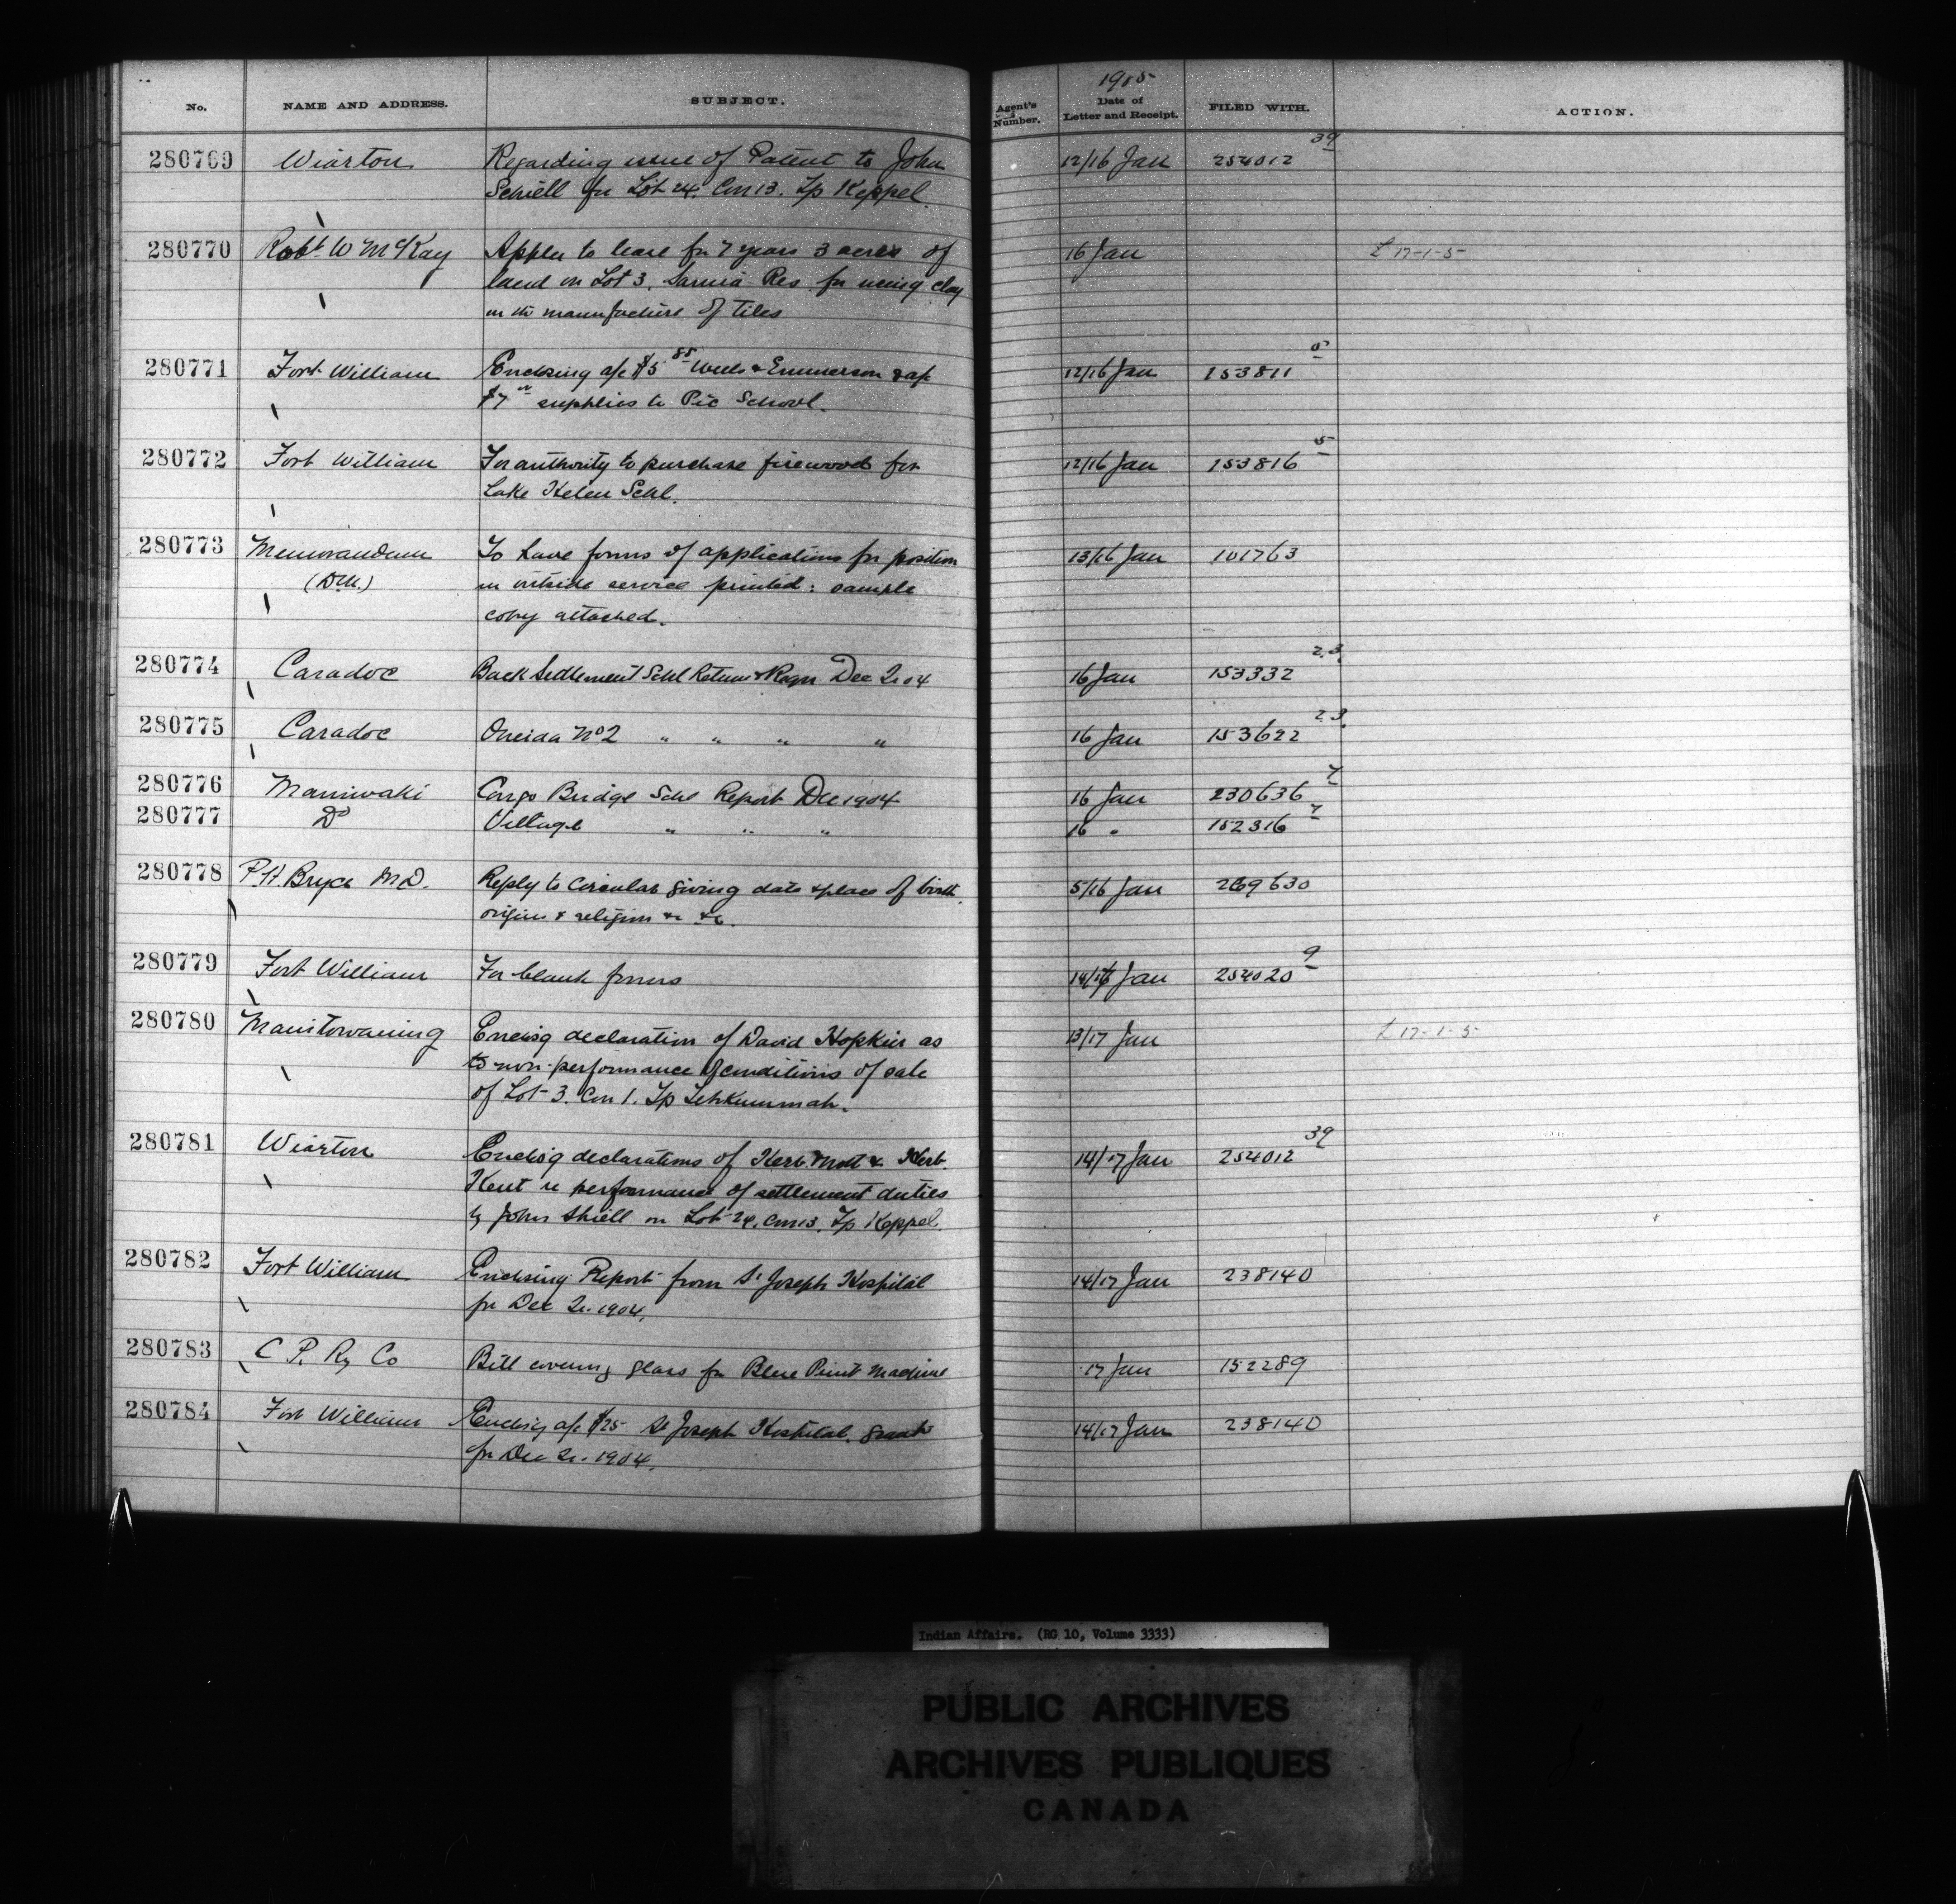 No. NAME AND ADDRESS. SUBJECT. Agent's Number. 1905 Date of Letter and Receipt. FILED WITH. ACTION.
280769 Wiarton Regarding issue of Patent to John 12/16 Jan 254012 39
Schiell for Lot 24. Con 13. Tp Keppel.
280770 Robt W McKay Applies to lease for 7 years 3 acres of 16 Jan L 17-1-5
land on Lot 3. Sarnia Res for using clay
in the manufacture of tiles
280771 Fort William Enclosing a/c $5 85 Wells & Emmerson & a/c 12/16 Jan 153811 5
$7 supplies to Pic School.
280772 Fort William For authority to purchase firewood for 12/16 Jan 153816 5
Lake Helen Schl.
280773 Memorandum To have forms of applications for position 13/16 Jan 101763
(D.M.) in outside service printed: sample
copy attached.
280774 Caradoc Back Settlement Schl Return & Report Dec Qr 04 16 Jan 153332 23
280775 Caradoc Oneida No 2 " " " " 16 Jan 153622 23
280776 Maniwaki Congo Bridge Schl Report Dec 1904 16 Jan 230636 7
280777 Do Village " " " 16 " 152316 7
280778 P.H. Bryce M.D. Reply to Circular giving date & place of birth, 5/16 Jan 269630
origin & religion &c &c.
280779 Fort William For blank forms 14/16 Jan 254020 9
280780 Manitowaning Enclosg declaration of David Hopkins as 13/17 Jan L 17-1-5
to non-performance of conditions of sale
of Lot 3. Con 1. Tp Tehkummah.
280781 Wiarton Enclosg declarations of Herb. Mott & Herb. 14/17 Jan 254012 39
Kent re performance of settlement duties
by John Shiell on Lot 24, Con 13, Tp Keppel.
280782 Fort William Enclosing Report from St Joseph Hospital 14/17 Jan 238140
for Dec Qr. 1904.
280783 C P. Ry Co Bill covering glass for Blue Print Machine 17 Jan 152289
280784 Fort William Enclosg a/c $25 St Joseph Hospital. grant 14/17 Jan 238140
for Dec Qr. 1904.
Indian Affairs. (RG 10, Volume 3333)
PUBLIC ARCHIVES
ARCHIVES PUBLIQUES
CANADA